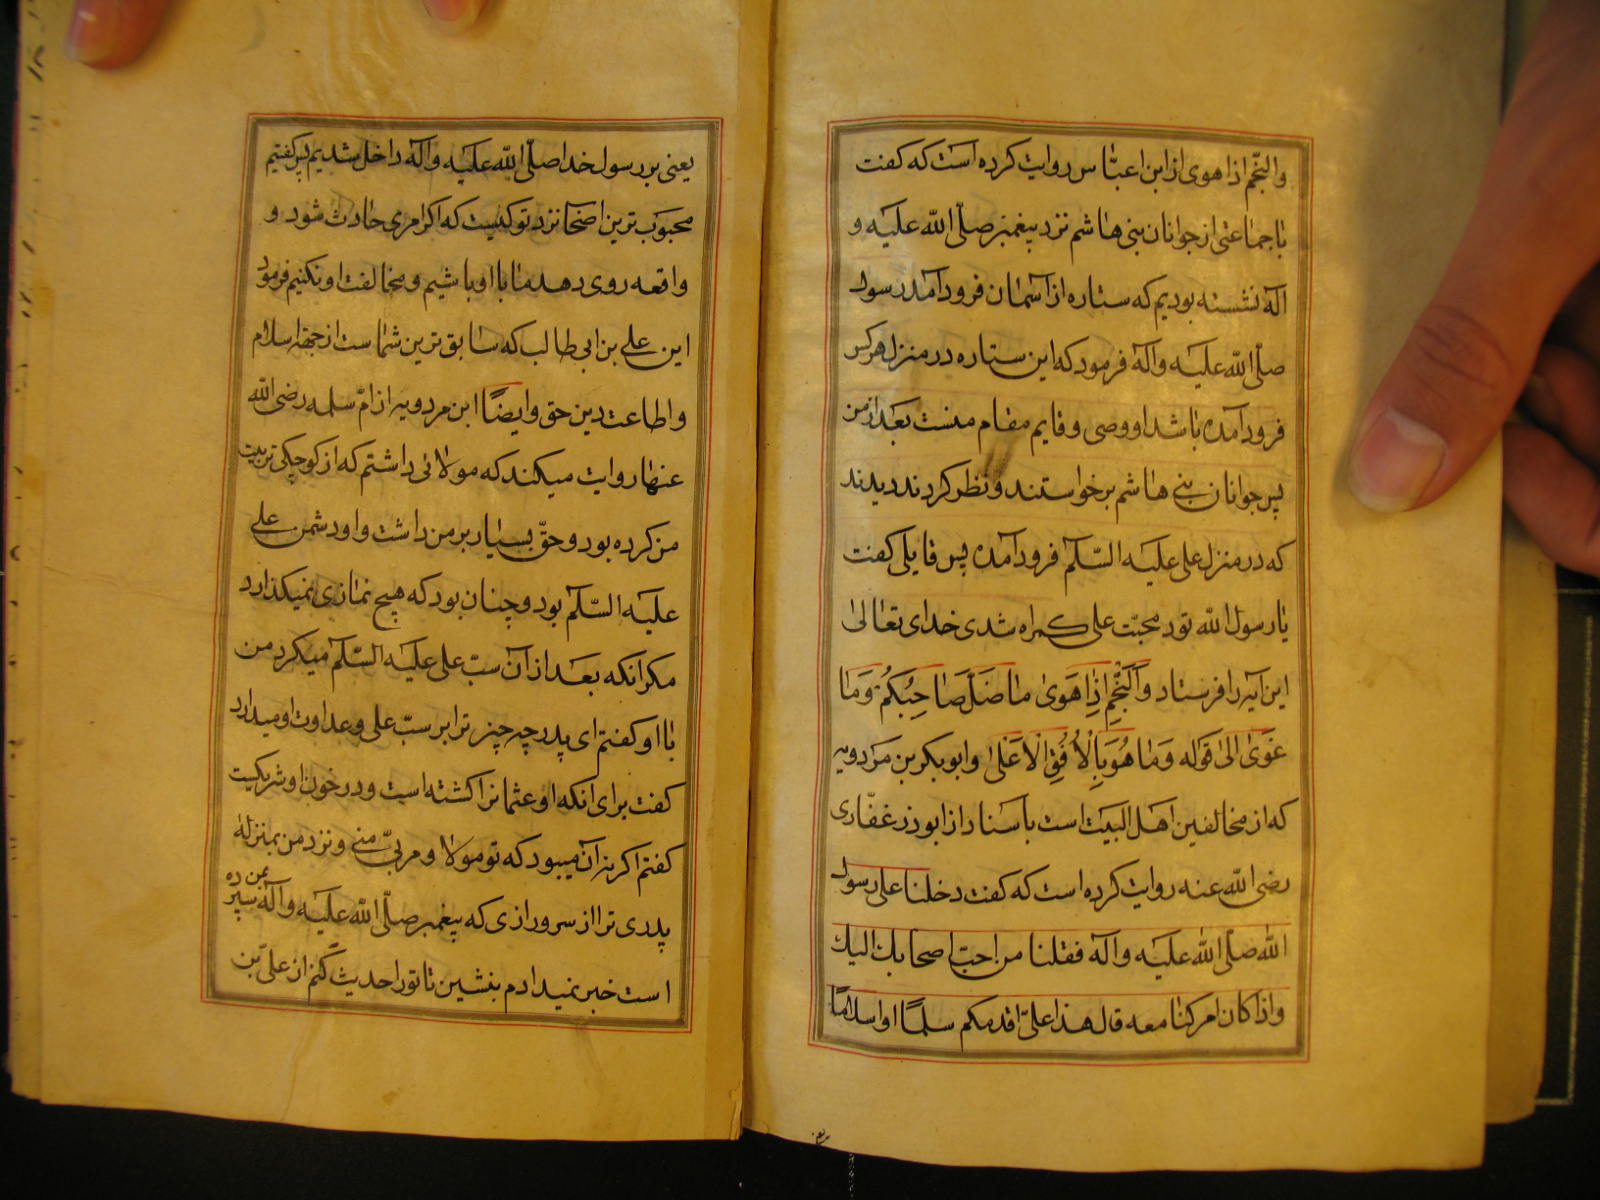 والنّجم اذا هوی از ابن اعبّاس روایت کرده است که کفت
با جماعتی از جوانان بنی هاشم نزد پیغمبر صلّی الله علیه و
آله نشسته بودیم که ستاره از آسمان فرود آمد رسول
صلّی الله علیه وآله فرمود که این ستاره در منزل هر کس
فرود آمده باشد او وصی و قایم مقام منست بعد از من
پس جوانان بنی هاشم برخواستند و نظر کردند دیدند
که در منزل علی علیه السّلم فرود آمده پس قایلی کفت
یا رسول الله تو در محبّت علی کمراه شدی خدای تعالی
این آیه را فرستاد وَالنَّجْمِ اِذَا هَوىٰ ما ضَلَّ صَاحِبُكُمْ وَمَا
غَوىٰ الیٰ قوله وَمَا هُوَ بِالْاُفُقِ الْاَعْلیٰ وابو بکر بن مردویه
که از مخالفین اهل البیت است باسناد از ابوذر غفّاری
رضی الله عنه روایت کرده است که کفت دخلنا علی رسول
الله صلّی الله علیه وآله فقلنا من احبّ اصحابك الیك
واذا کان امر کنّا معه قال هذا علیّ اقدمکم سلمًا واسلامًا
یعنی
یعنی بر رسول خدا صلّی الله علیه وآله داخل شدیم پس کفتیم
محبوب ترین اصحاب نزد تو کیست که اکر امری حادث شود و
واقعه روی دهد ما با او باشیم و مخالفت او نکنیم فرمود
این علی بن ابی طالب که سابق ترین شماست از جهة اسلام
واطاعت دین حق وایضًا ابن مردویه از امّ سلمه رضی الله
عنها روایت میکند که مولائی داشتم که از کوچکی تربیت
من کرده بود و حقّ بسیار بر من داشت واو دشمن علی
علیه السّلم بود و چنان بود که هیچ نمازی نمیکذارد
مکر آنکه بعد از آن سبّ علی علیه السّلم میکرد من
با او کفتم ای پدر چه چیز ترا بر سبّ علی و عداوت او میدارد
کفت برای آنکه او عثمانرا کشته است و در خون او شریکست
کفتم اکر نه آن میبود که تو مولا و مربّی منی و نزد من بمنزلهٔ
پدری ترا از سرو رازی که پیغمبر صلّی الله علیه وآله بمن سپرده
است خبر نمیدادم بنشین تا تو را حدیث کنم از علی بن